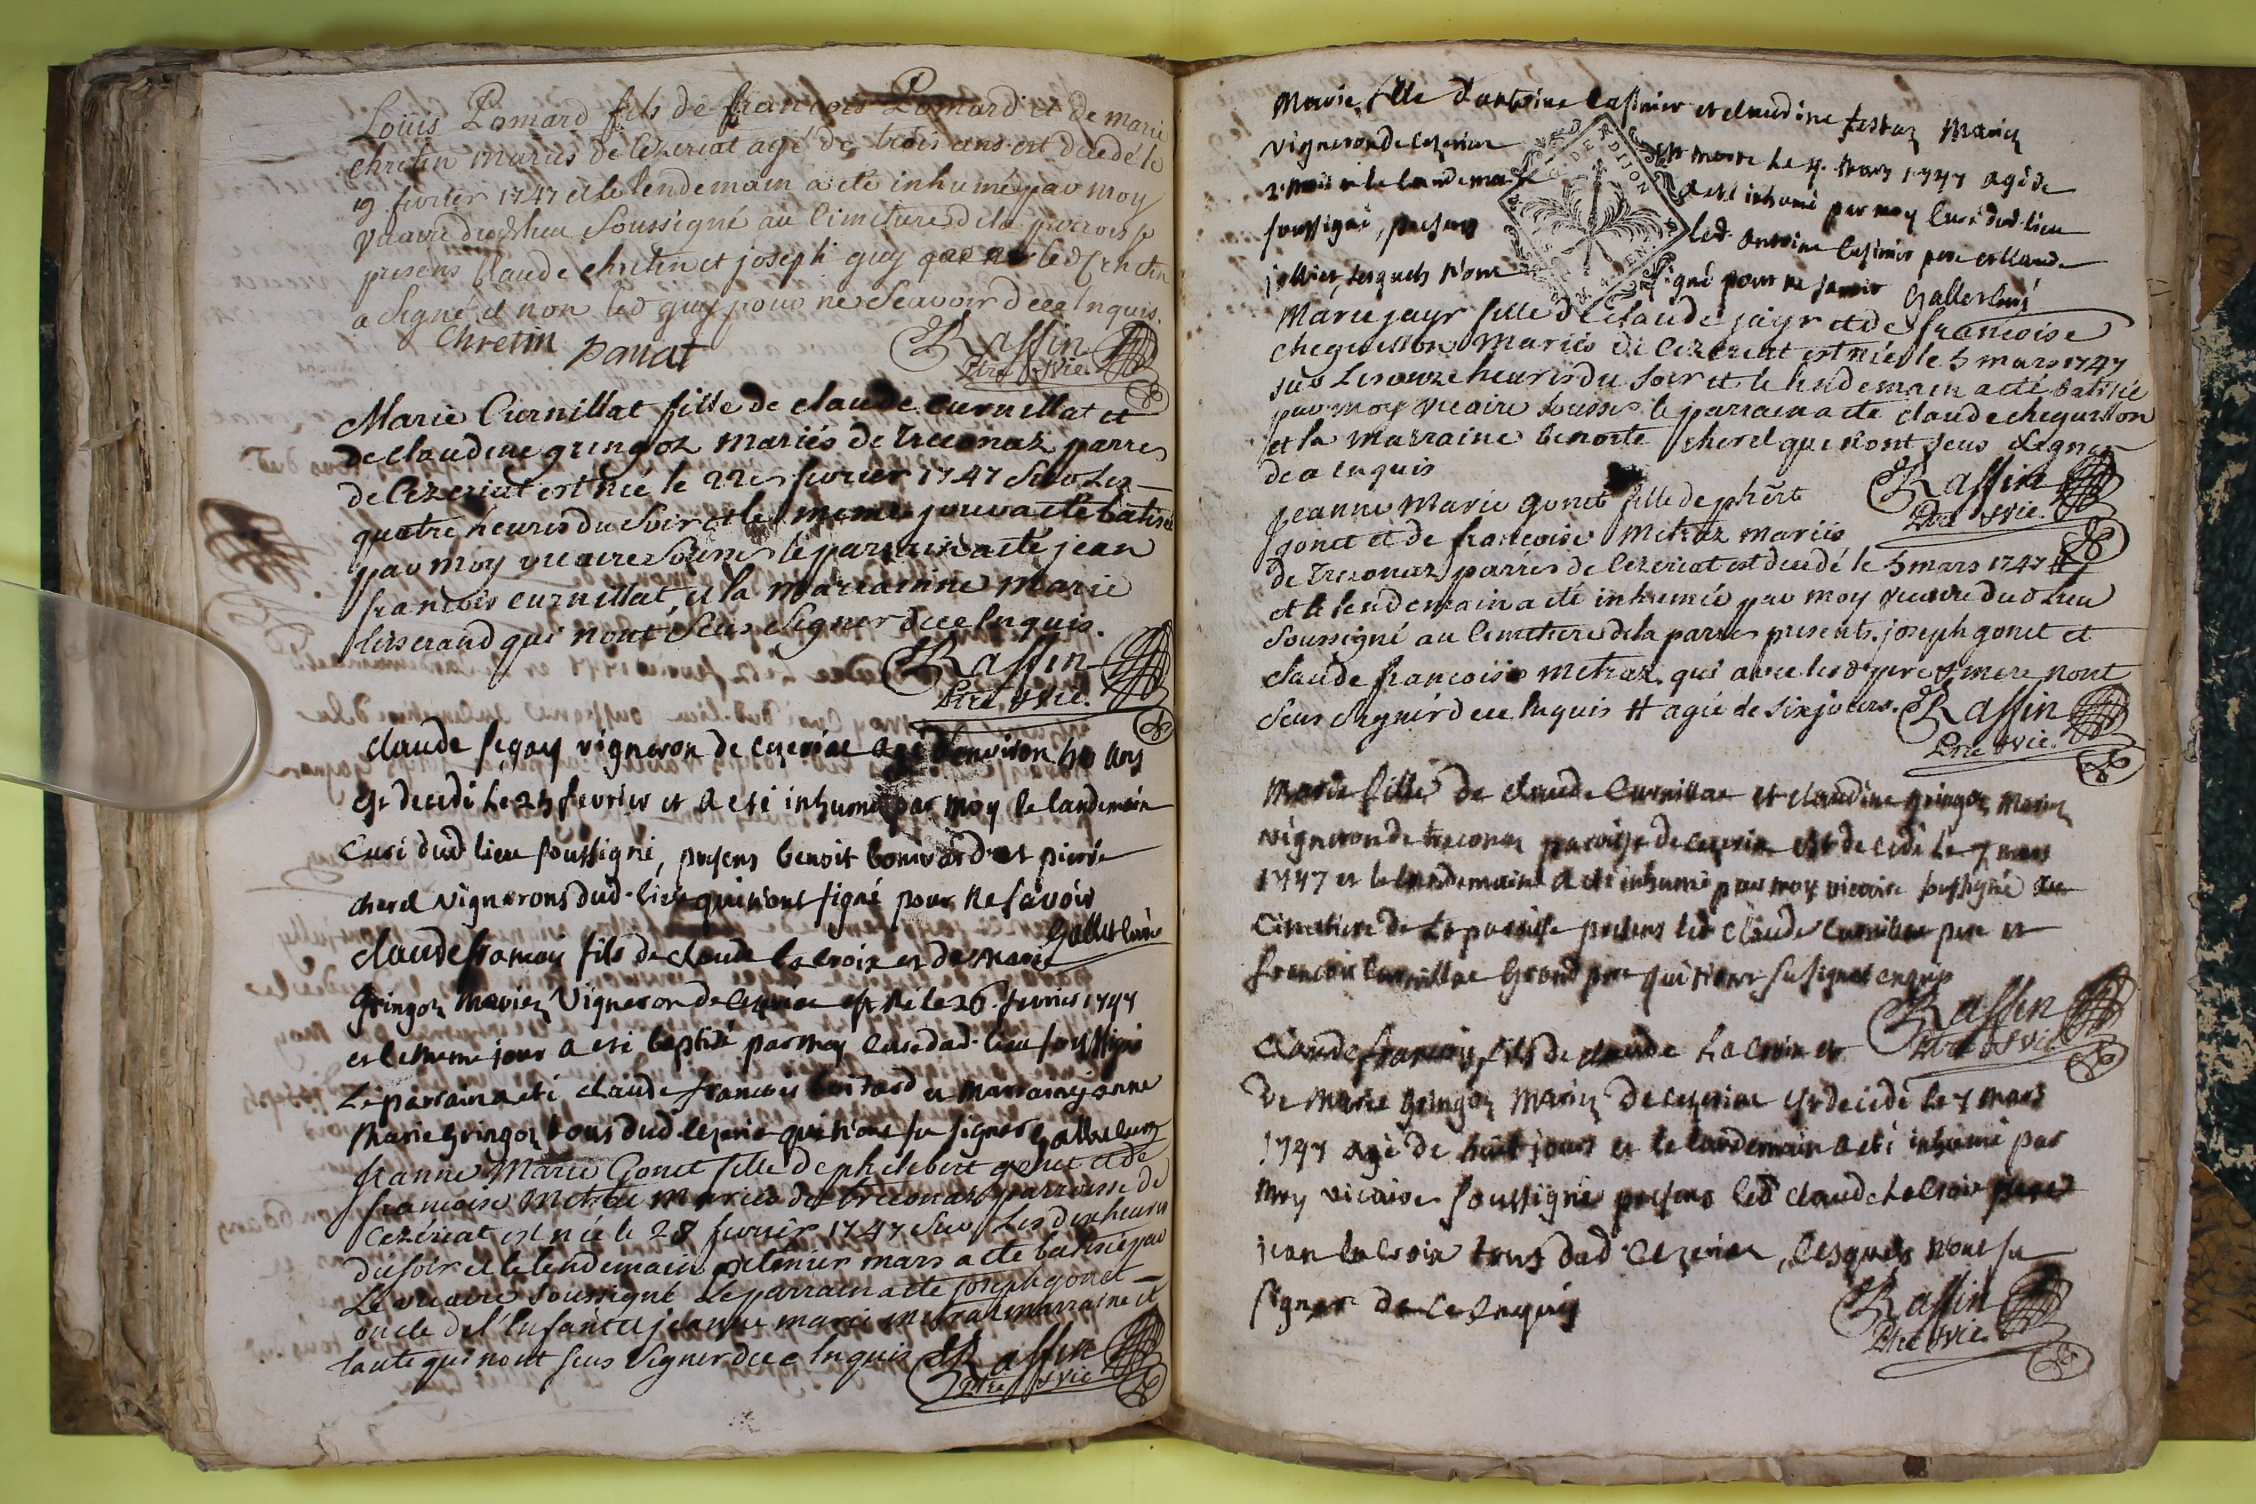 Louis Pomard fils de francois Pomard et de marie
chretin mariés de Cezeriat agé de trois ans est decedé le
19 fevrier 1747 et le lendemain a eté inhumé par moy
vicaire dud lieu soussigné au cimetiere de la paroisse
presens claude chretin et joseph guy que led Chretin
a signé et non led guy pour ne scavoir de ce enquis.
Chretin panat Raffin
ptre vic.
Marie Curnillat fille de claude curnillat et
de claudine gringoz mariés de treconaz parres
de Cezeriat est née le 22e fevrier 1747 sur Les
quatre heures du soir et le meme jour a eté batisée
par moy vicaire sousne le parrain a eté jean
francois curnillat, et la marrainne Marie
tisserand qui nont sceus signer de ce enquis.
Raffin
Ptre vic.
claude vigneron de cezeriat agé d'environ 50 ans
est decedé le 25 fevrier et a eté inhumé par moy le landemain
Curé dud lieu soussigné, presens benoit bonivard et pierre
cherel vignerons dud. lieu qui n'ont signé pour ne savoir
Gallet curé
claude francois fils de claude la croix et de marie
gringoz mariez vigneron de cezeriat est né le 26 fevrier 1747
et le meme jour a eté baptisé par moy curé dud. lieu soussigné
Le parrain a eté claude francois et marraine janne
Marie gringoz tous dud cezeriat qui n'ont su signer Gallet curé
Jeanne Marie Gonet fille de philebert gonet et de
francoise metraz mariés de treconaz parroisse de
Cezériat est née le 28 fevrier 1747 sur Les dix heures
du soir et le lendemain premier mars a eté batisée par
Le vicaire soussigné Le parrain a eté joseph gonet
oncle de l'enfant et jeanne marie metraz marraine et
tante qui nont sceus signer de ce enquis Raffin
Ptre vic
Marie fille d'antoine casimir et claudine mariez
vigneron de cezeriat est morte le 4. mars 1747 agé de
2. mois et le landemain a eté inhumé par moy curé dud. lieu
soussigné, presens led. antoine casimir pere et claude
jollier, lesquels n'ont signé pour ne savoir Gallet curé
DE DIJON
Marie jayr fille de claude jayr et de francoise
cheguillon mariés de Cezeriat est née le 5 mars 1747
sur Les onze heures du soir et le lendemain a eté batisée
par moy vicaire sousse le parrain a eté claude cheguillon
et la marraine benoite cherel qui nont sceus signer
de ce enquis
Raffin
Ptre vic.
Jeanne Marie gonet fille de phert
gonet et de francoise metraz mariés
de treconaz parres de Cezeriat est decedé le 5 mars 1747 #
et le lendemain a eté inhumée par moy vicaire dud Lieu
Soussigné au Cimetiere de la parres presents. joseph gonet et
claude francoise metraz qui avec lesd. pere & mere nont
sceus signer de ce enquis # agée de six jours. Raffin
Ptre vic.
Marie fille de claude Curnillat et claudine gringoz mariez
vigneron de treconaz paroisse de cezeriat est decedé le 7 mars
1747 et le landemain a eté inhumé par moy vicaire soussigné au
Cimetiere de la paroisse presens led claude curnillat pere et
francois curnillat grand pere qui n'ont su signer enquis
Raffin
Ptre vic
Claude francois fils de claude La croix et
de Marie gringoz mariez de cezeriat est decedé le 7 mars
1747 agé de huit jours et le landemain a eté inhumé par
moy vicaire soussigné presens led claude La croix pere
jean la croix tous dud. cezeriat, lesquels n'ont su
signer de ce enquis
Raffin
Ptre vic.